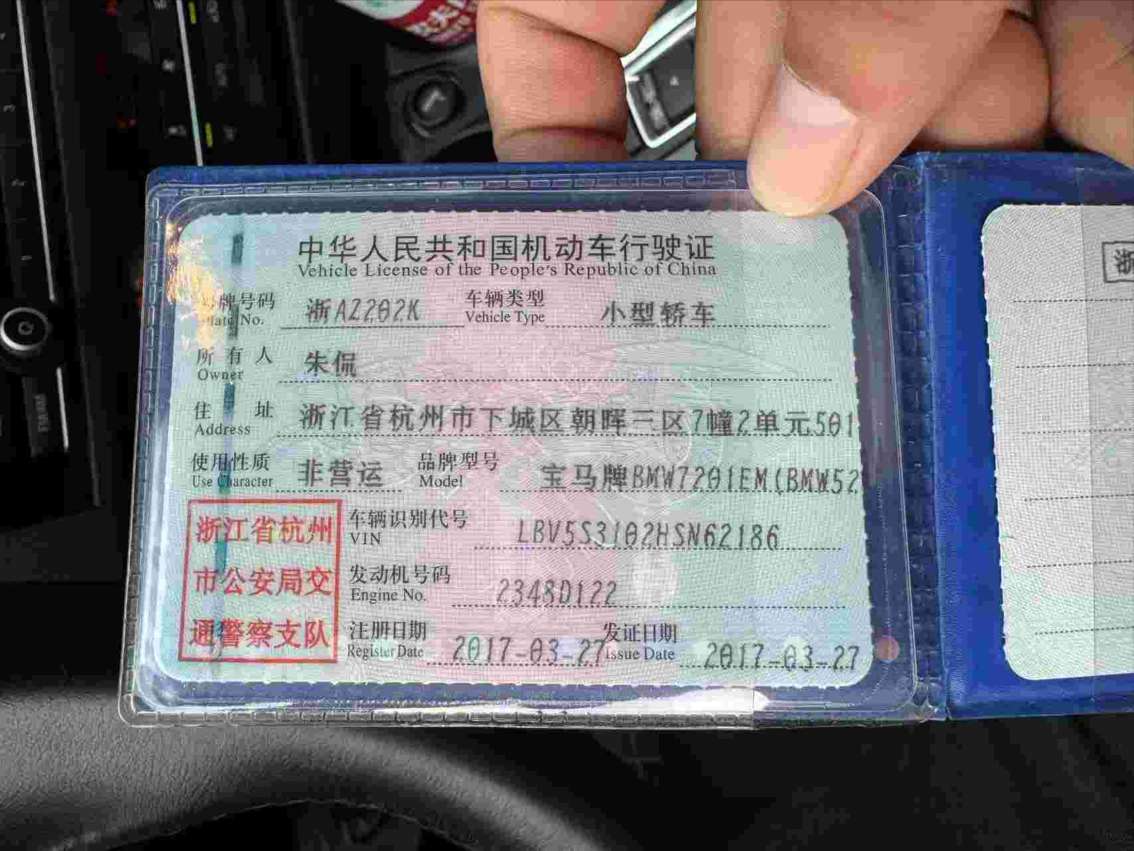 中华人民共和国机动车行驶证
Vehicle License of the People's Republic of China
号牌号码 浙AZ202K 车辆类型 小型轿车
Plate No. Vehicle Type
所有人 朱侃
Owner
住址 浙江省杭州市下城区朝晖三区7幢2单元501
Address
使用性质 非营运 品牌型号 宝马牌BMW7201EM(BMW52
Use Character Model
浙江省杭州
市公安局交
通警察支队
车辆识别代号 LBV5S3102HSN62186
VIN
发动机号码 2348D122
Engine No.
注册日期 2017-03-27 发证日期 2017-03-27
Register Date Issue Date
浙